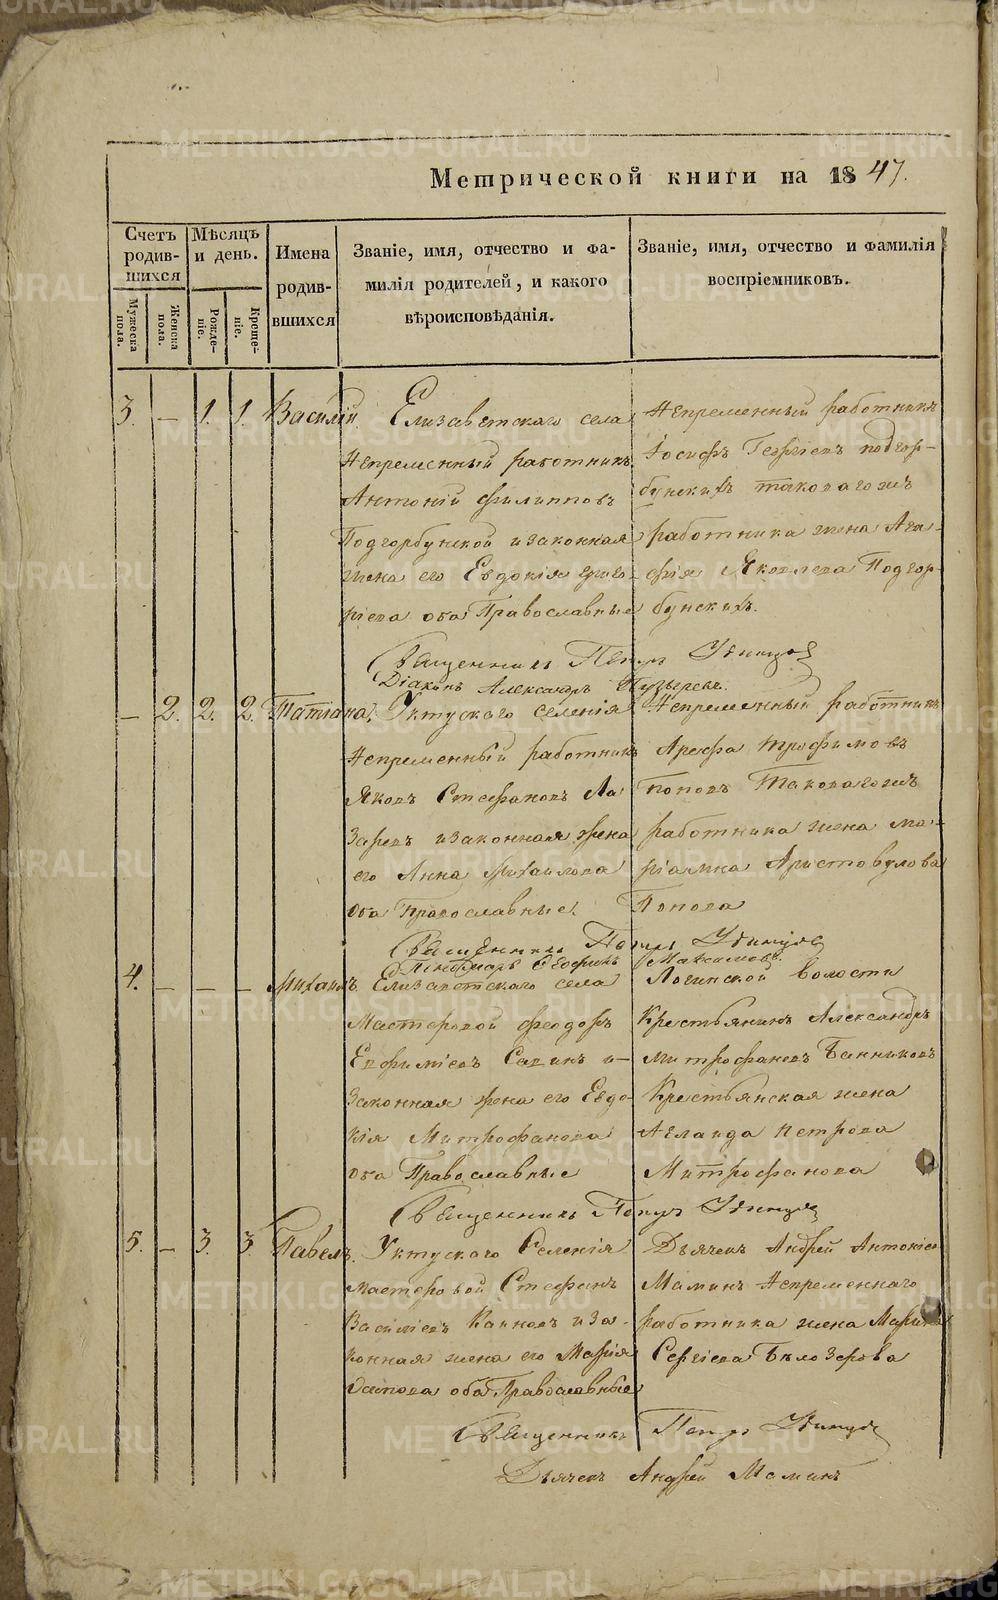 Метрической книги на 1847.
Счетъ родив-шихся
Мѣсяцъ и день.
Имена родив-вшихся
Званіе, имя, отчество и фа-
милія родителей, и какого
вѣроисповѣданія.
Званіе, имя, отчество и фамилія
воспріемниковъ.
Мужеска пола.
Женска пола.
Рожде-ніе.
Креще-ніе.
3. — 1. 1. Василій.
Елизаветскаго села
Непременный работникъ
Антоній Филипповъ
Подгорбунской и законная
жена его Евдокія Григо-
ріева оба Православные
Непременный работникъ
Іосифъ Георгіевъ подгор-
бунскихъ таковагожъ
работника жена Ага-
фія Яковлева Подгор-
бунскихъ.
Священникъ Петръ Удинцов
Діаконъ Александръ Пузыревъ.
— 2. 2. 2. Татіана.
Уктускаго селенія
Непременный работникъ
Яковъ Стефановъ Ла-
заревъ и законная жена
его Анна Михайлова
оба православные.
Непременный работникъ
Арефа Трофимовъ
Поповъ Таковагожъ
работника жена Ма-
ріамна Аристовулова
Попова
Священникъ Петръ Удинцов
Пономарь Максимовъ.
4. — — — Михаилъ.
Елизаветскаго села
Мастеровой Феодоръ
Евфиміевъ Савинъ и-
Законная жена его Евдо-
кія Митрофанова
оба Православные
Логинской волости
Крестьянинъ Александръ
Митрофановъ Банниковъ
Крестьянская жена
Аглаида Петрова
Митрофанова
Священникъ Петръ Удинцов
5. — 3. 3. Павелъ.
Уктускаго Селенія
мастеровой Стефанъ
Василіевъ Каиновъ и за-
конная жена его Марія
Осипова оба Православные
Дьячекъ Андрей Антоніев
Маминъ Непременнаго
работника жена Марина
Сергіева Бѣлозерова
Священникъ Петръ Удинцов
Дьячекъ Андрей Маминъ
METRIKI.GASO-URAL.RU